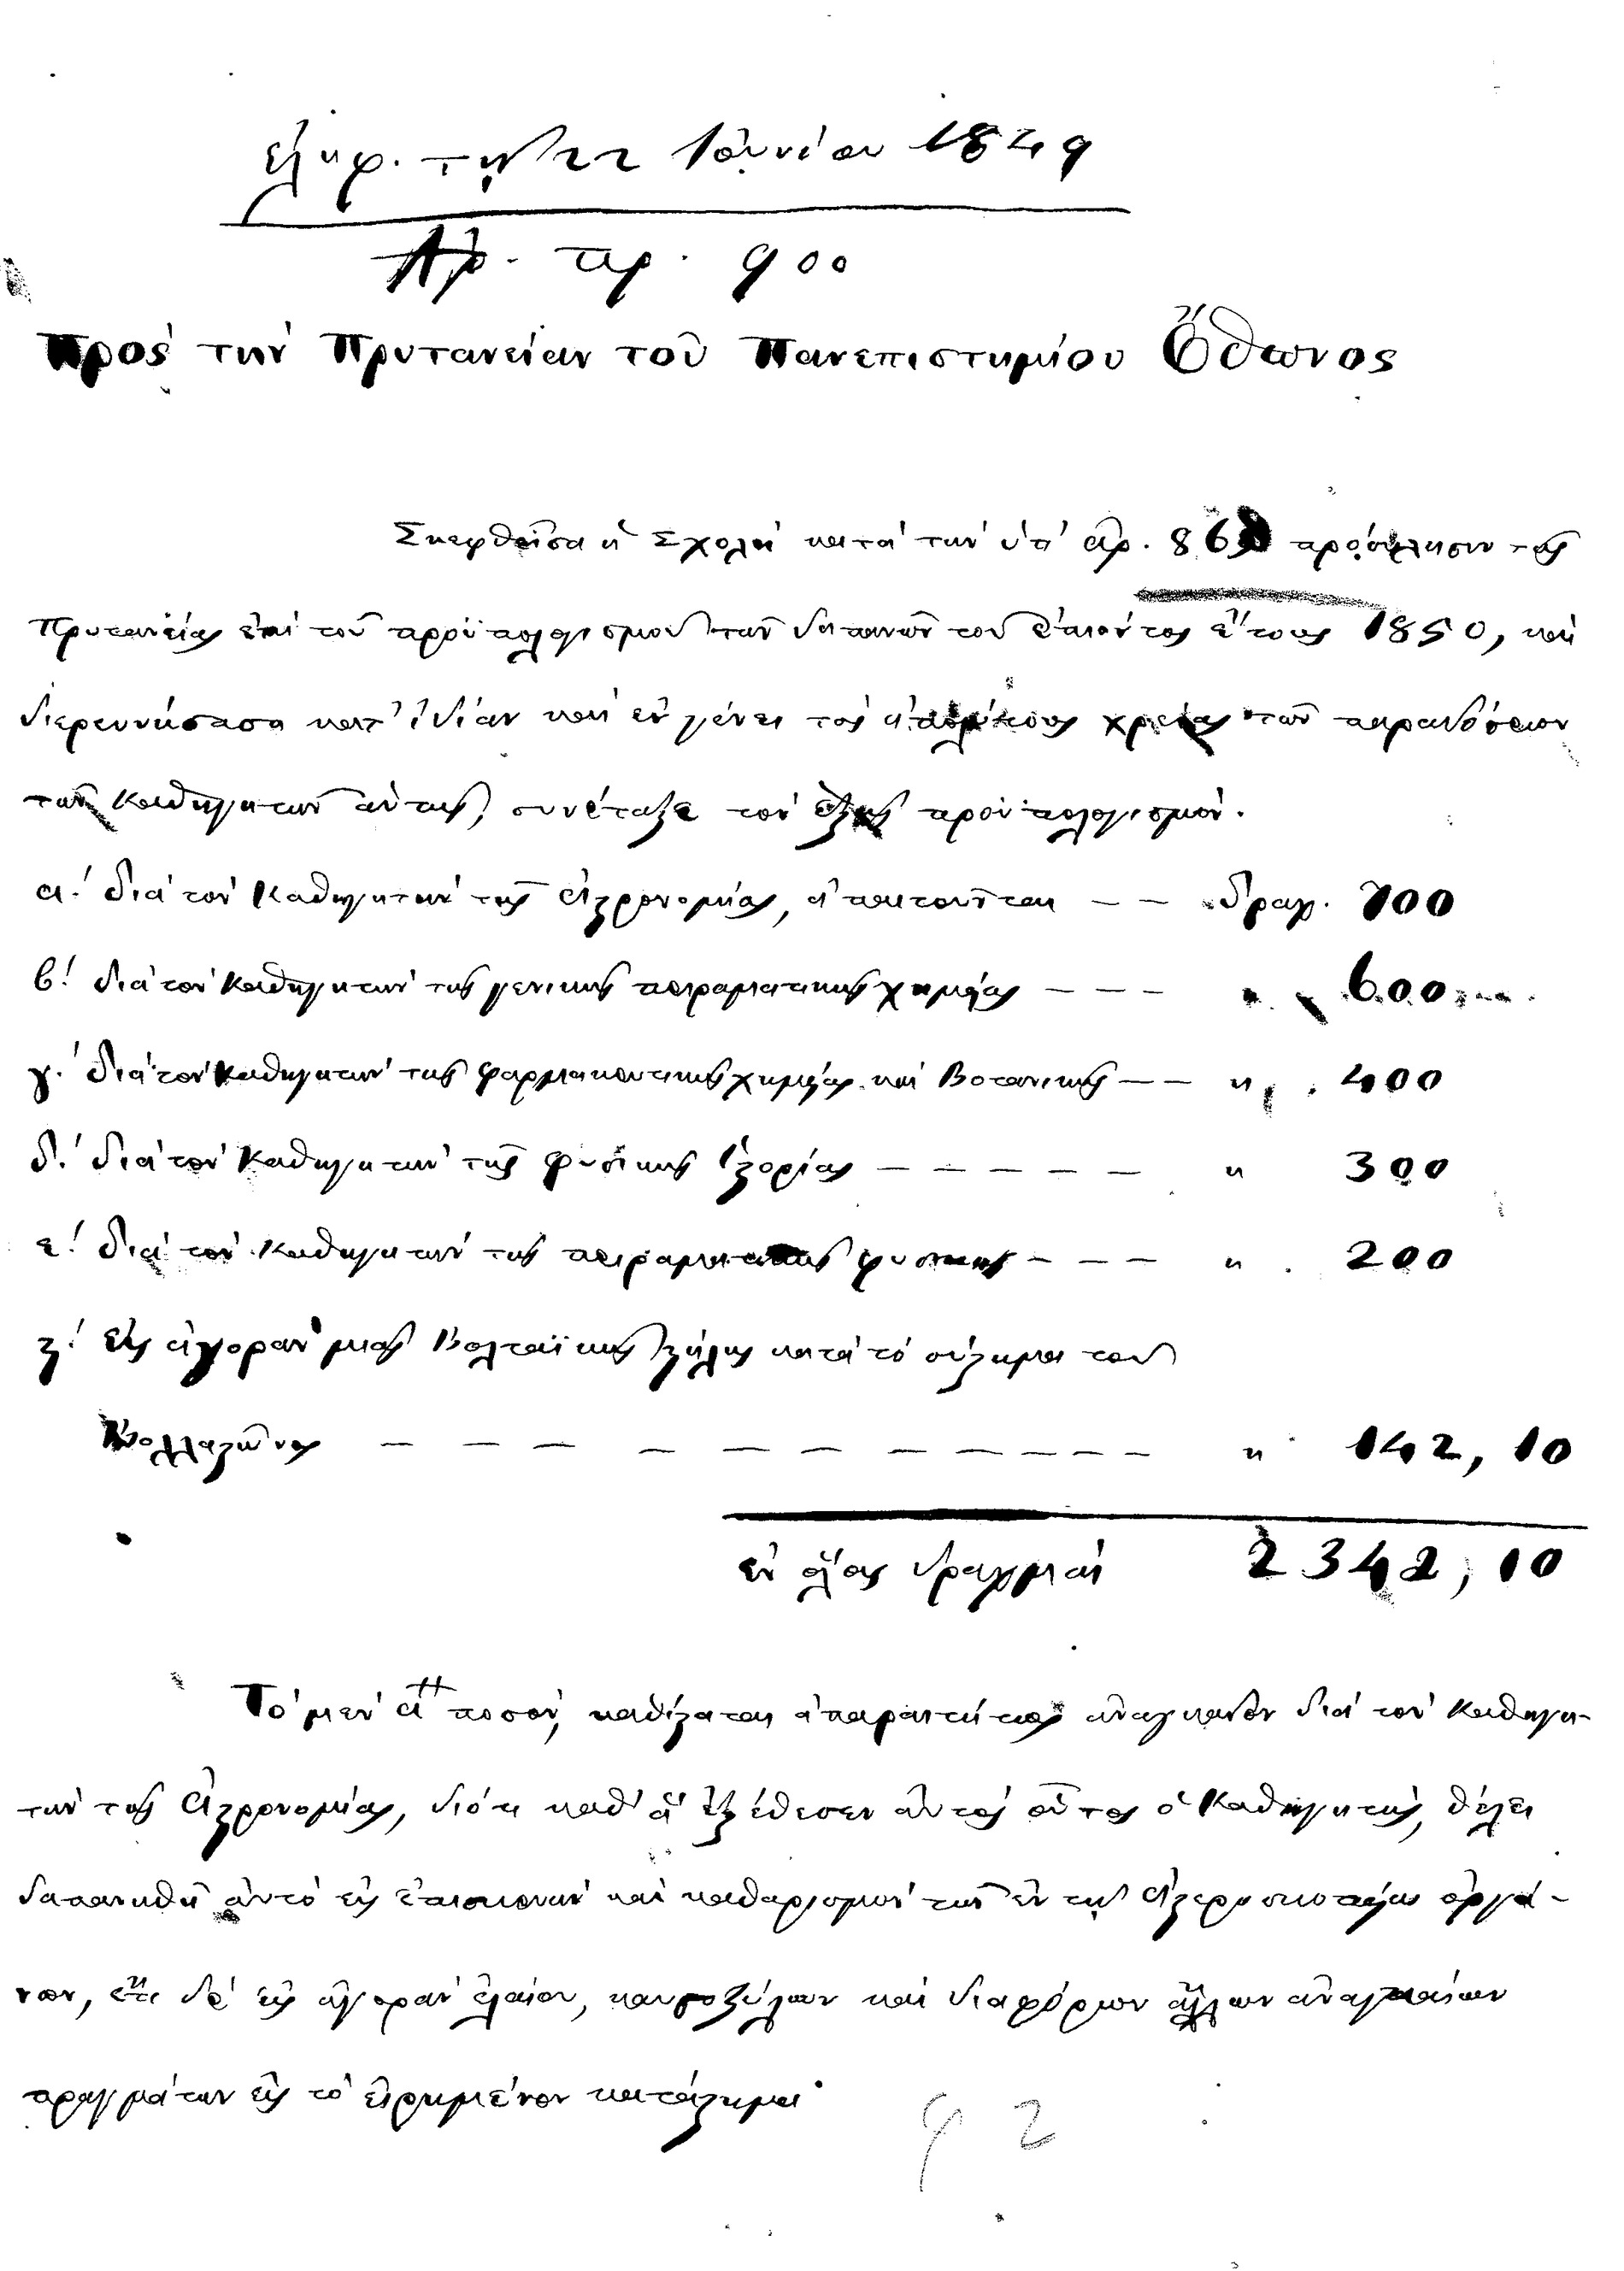 ἐλήφ. τῇ 22 Ἰουνίου 1849
Ἀρ. πρ. 900
Πρὸς τὴν Πρυτανείαν τοῦ Πανεπιστημίου Ὄθωνος
Σκεφθεῖσα ἡ Σχολὴ κατὰ τὴν ὑπ' ἀρ. πρόσκλησιν τῆς
Πρυτανείας ἐπὶ τοῦ προϋπολογισμοῦ τῶν δαπανῶν τοῦ ἐπιόντος ἔτους 1850, καὶ
διερευνήσασα κατ' ἰδίαν καὶ ἐν γένει τὰς χρείας τῶν παραδόσεων
τῶν Καθηγητῶν αὐτῆς, συνέταξε τὸν ἑξῆς προϋπολογισμόν.
α.' διὰ τὸν Καθηγητὴν τῆς Ἀστρονομίας, ἀπαιτοῦνται — — δραχ. 700
β.' διὰ τὸν Καθηγητὴν τῆς γενικῆς πειραματικῆς χημείας — — — " 600
γ.' διὰ τὸν Καθηγητὴν τῆς φαρμακευτικῆς χημείας καὶ Βοτανικῆς — — " 400
δ.' διὰ τὸν Καθηγητὴν τῆς φυσικῆς Ἱστορίας — — — — — " 300
ε.' διὰ τὸν Καθηγητὴν τῆς πειραματικῆς φυσικῆς — — — " 200
ζ.' εἰς ἀγορὰν μιᾶς Βολταϊκῆς στήλης κατὰ τὸ σύστημα τοῦ
— — — — — — — — — — — " 142, 10
ἐν ὅλοις δραχμαὶ 2342, 10
Τὸ μὲν α'' ποσόν, καθίσταται ἀπαραιτήτως ἀναγκαῖον διὰ τὸν Καθηγη-
τὴν τῆς Ἀστρονομίας, διότι καθ' ἃ ἐξέθεσεν αὐτὸς οὗτος ὁ Καθηγητής, θέλει
δαπανηθῆ αὐτὸ εἰς ἐπισκευὴν καὶ καθαρισμὸν τῶν ἐν τῷ Ἀστεροσκοπείῳ ὀργά-
νων, ἔτι δὲ εἰς ἀγορὰν ἐλαίου, καυσοξύλων καὶ διαφόρων ἄλλων ἀναγκαίων
πραγμάτων εἰς τὸ εἰρημένον κατάστημα.